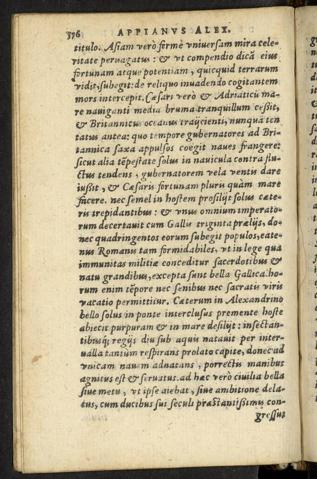 376 APPIANVS ALEX.
titulo. Asiam verò fermè vniuersam mira cele-
ritate peruagatus: & vt compendio dicā eius
fortunam atque potentiam, quicquid terrarum
vidit, subegit: de reliquo inuadendo cogitantem
mors intercepit. Cæsari verò & Adriaticū ma-
re nauiganti media bruma tranquillum cessit,
& Britannicus oceanus traijcienti, nunquā ten
tatus antea: quo tempore gubernatores ad Bri-
tannica saxa appulsos coëgit naues frangere:
sicut alia tēpestate solus in nauicula contra flu-
ctus tendens, gubernatorem vela ventis dare
iussit, & Cæsaris fortunam pluris quàm mare
facere. nec semel in hostem prosilijt solus cate-
ris trepidantibus: & vnus omnium imperato-
rum decertauit cum Gallis triginta prælijs, do-
nec quadringentos eorum subegit populos, eate-
nus Romanis tam formidabiles, vt in lege qua
immunitas militiæ conceditur sacerdotibus &
natu grandibus, excepta sunt bella Gallica. ho-
rum enim tēpore nec senibus nec sacratis viris
vacatio permittitur. Cæterum in Alexandrino
bello solus in ponte interclusus premente hoste
abiecit purpuram & in mare desilijt: insectan-
tibusq; regijs diu sub aquis natauit per inter-
ualla tantùm respirans prolato capite, donec ad
vnicam nauim adnatans, porrectis manibus
agnitus est & seruatus. ad hæc verò ciuilia bella
siue metu, vt ipse aiebat, siue ambitione dela-
tus, cum ducibus sui seculi præstantissimis con-
gressus